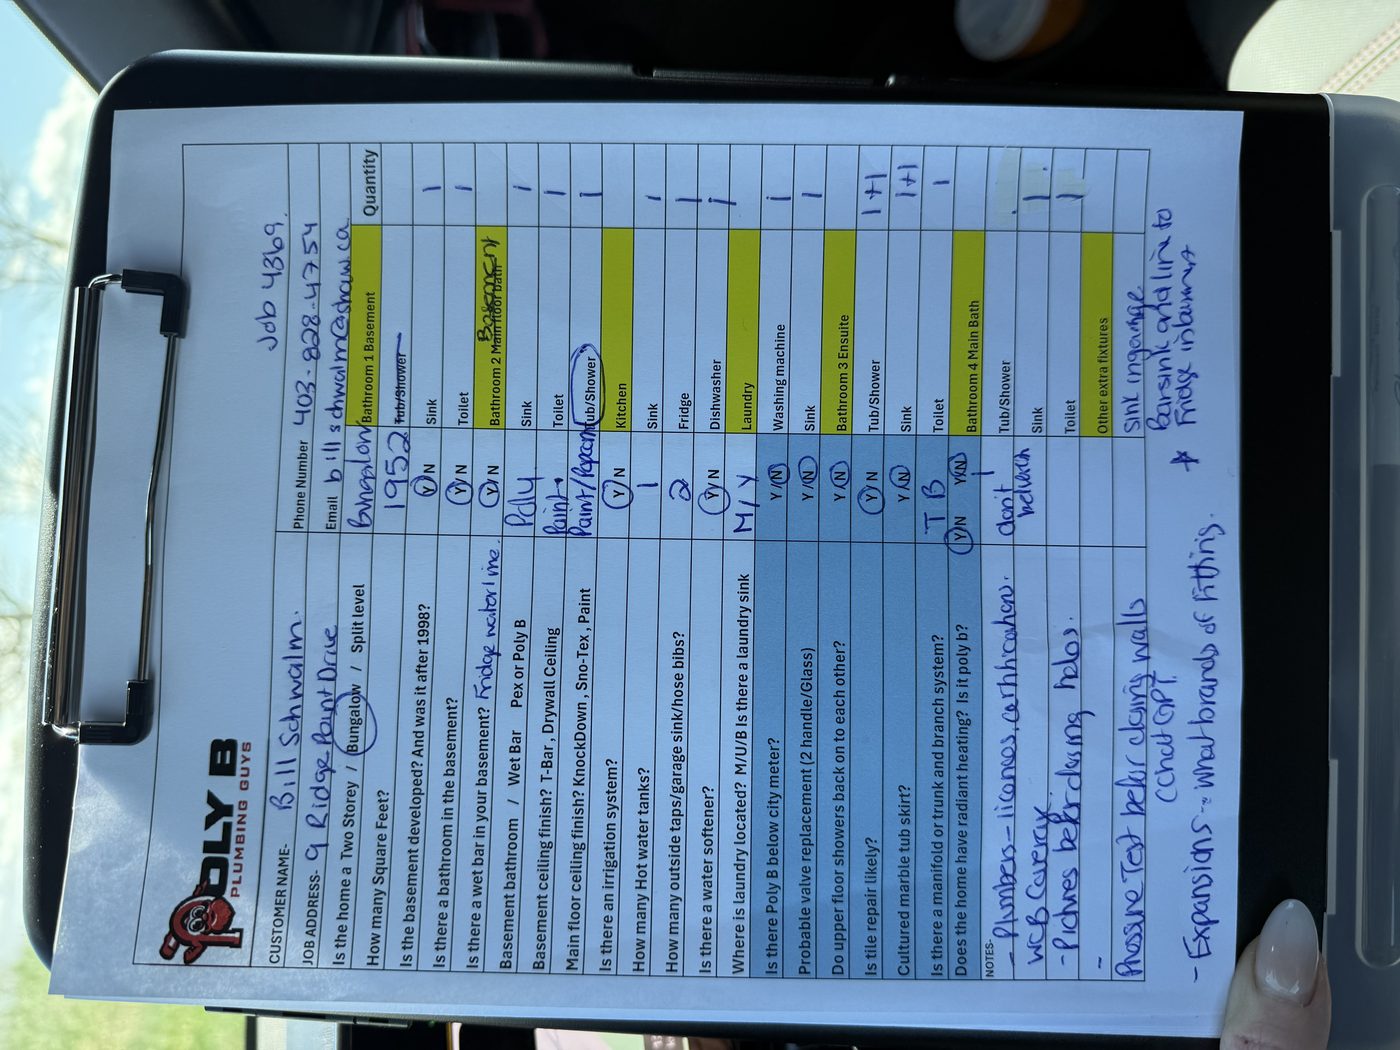 Job 4369.
POLY B
PLUMBING GUYS
CUSTOMER NAME- Bill Schwalm.
Phone Number 403-828-4754
JOB ADDRESS- 9 Ridge Point Drive
Email billschwalm@shaw.ca
Is the home a Two Storey / Bungalow / Split level Bungalow
Bathroom 1 Basement Quantity
How many Square Feet? 1952
Tub/Shower
Is the basement developed? And was it after 1998? Y/N
Sink 1
Is there a bathroom in the basement? Y/N
Toilet 1
Is there a wet bar in your basement? Fridge waterline. Y/N
Bathroom 2 Main floor bath Basement
Basement bathroom / Wet Bar Pex or Poly B Polly
Sink 1
Basement ceiling finish? T-Bar, Drywall Ceiling Paint
Toilet 1
Main floor ceiling finish? KnockDown, Sno-Tex, Paint Paint/
Tub/Shower 1
Is there an irrigation system? Y/N
Kitchen
How many Hot water tanks? 1
Sink 1
How many outside taps/garage sink/hose bibs? 2
Fridge 1
Is there a water softener? Y/N
Dishwasher 1
Where is laundry located? M/U/B Is there a laundry sink M/Y
Laundry
Is there Poly B below city meter? Y/N
Washing machine 1
Probable valve replacement (2 handle/Glass) Y/N
Sink 1
Do upper floor showers back on to each other? Y/N
Bathroom 3 Ensuite
Is tile repair likely? Y/N
Tub/Shower 1+1
Cultured marble tub skirt? Y/N
Sink 1+1
Is there a manifold or trunk and branch system? T B
Toilet 1
Does the home have radiant heating? Is it poly b? Y/N Y/N
Bathroom 4 Main Bath
NOTES-
- Plumbers - licenses, certifications. don't
Tub/Shower
WCB Coverage
Sink 1
- Pictures before closing holes.
Toilet 1
-
Other extra fixtures
Pressure Test before closing walls
Sink in garage
(Chat GPT
Bar sink and line to
* Fridge in basement
- Expansions - what brands of fitting.